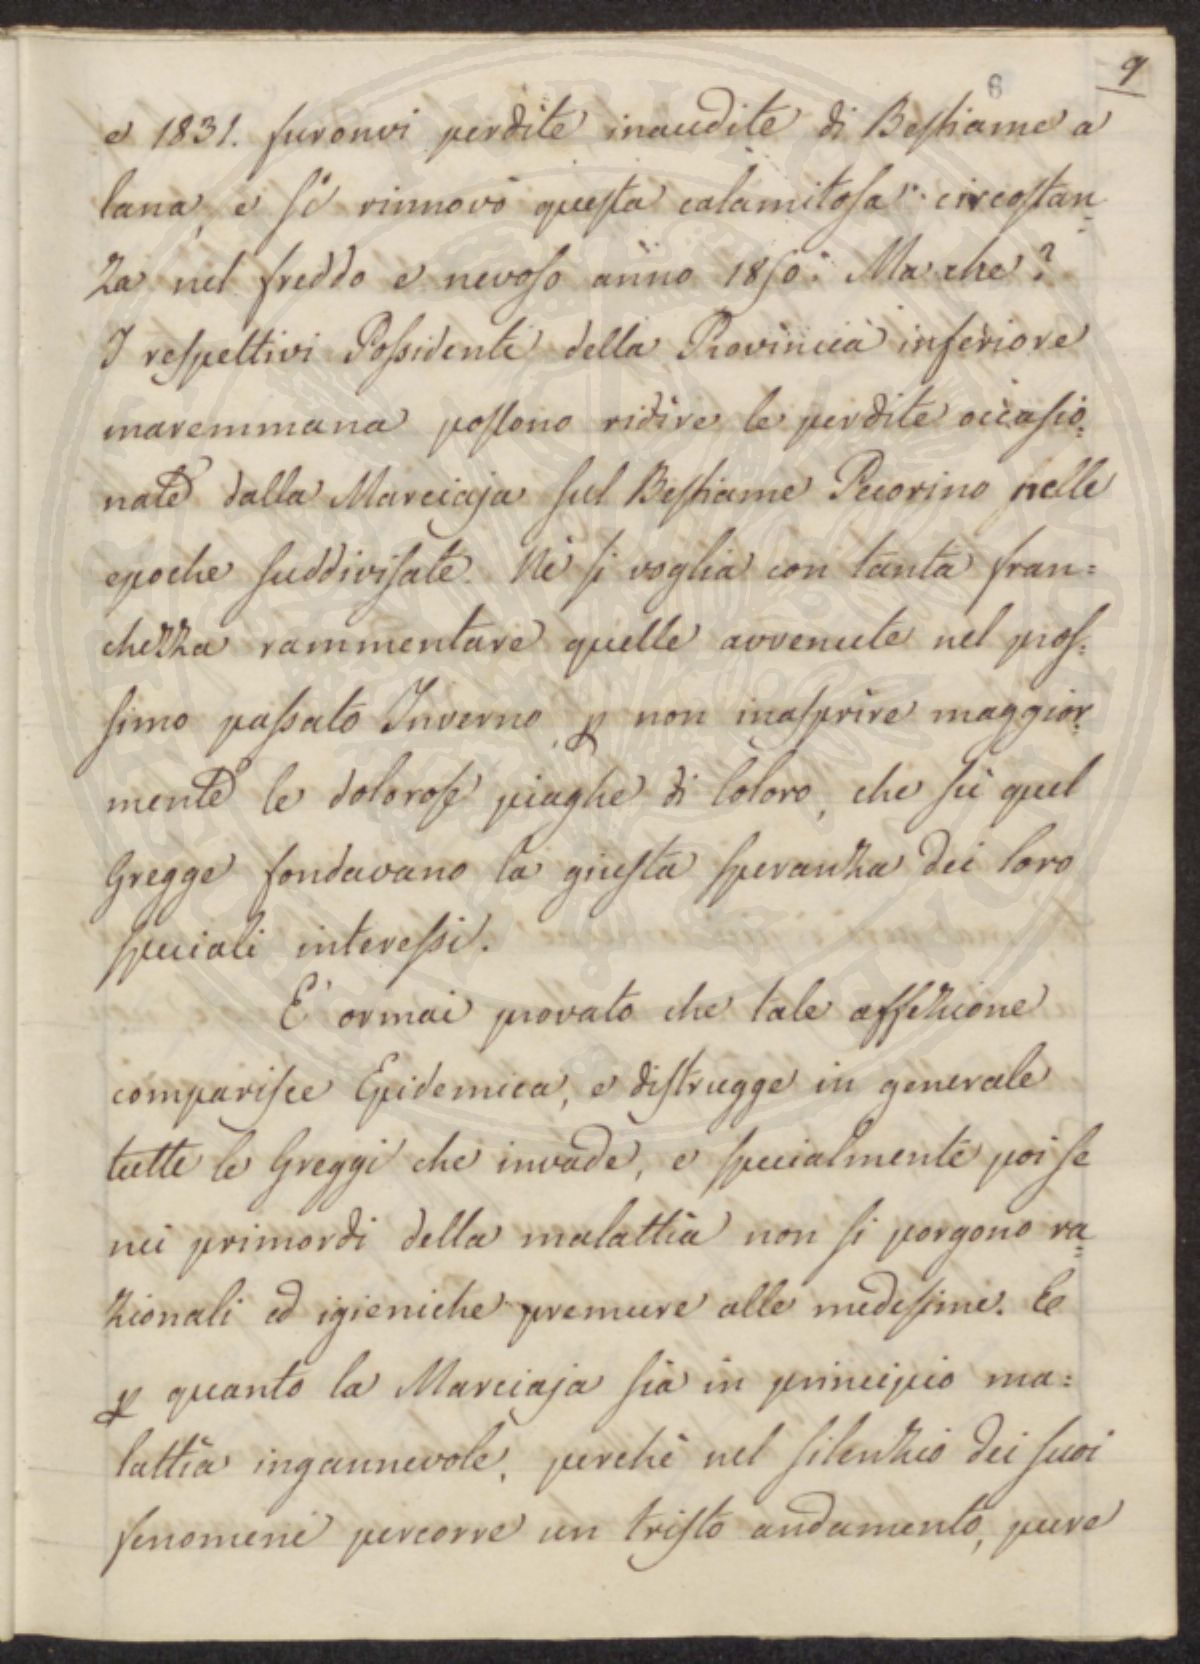 6
9
e 1831. furonvi perdite inaudite di Bestiame a
lana, e si rinnovò questa calamitosa circostan=
za nel freddo e nevoso anno 1850. Ma che?
I respettivi Possidenti della Provincia inferiore
maremmana possono ridire le perdite occasio=
nate dalla Marciaja sul Bestiame Pecorino nelle
epoche suddivisate. Nè si voglia con tanta fran=
chezza rammentare quelle avvenute nel pros=
simo passato Inverno, p non inasprire maggior=
mente le dolorose piaghe di coloro, che sù quel
Gregge fondavano la giusta speranza dei loro
speciali interessi.
E' ormai provato che tale affezione
comparisce Epidemica, e distrugge in generale
tutte le Greggi che invade, e specialmente poi se
nei primordi della malattia non si porgono ra=
zionali ed igieniche premure alle medesime. E
p quanto la Marciaja sia in principio ma=
lattia ingannevole, perchè nel silenzio dei suoi
fenomeni percorre un tristo andamento, pure